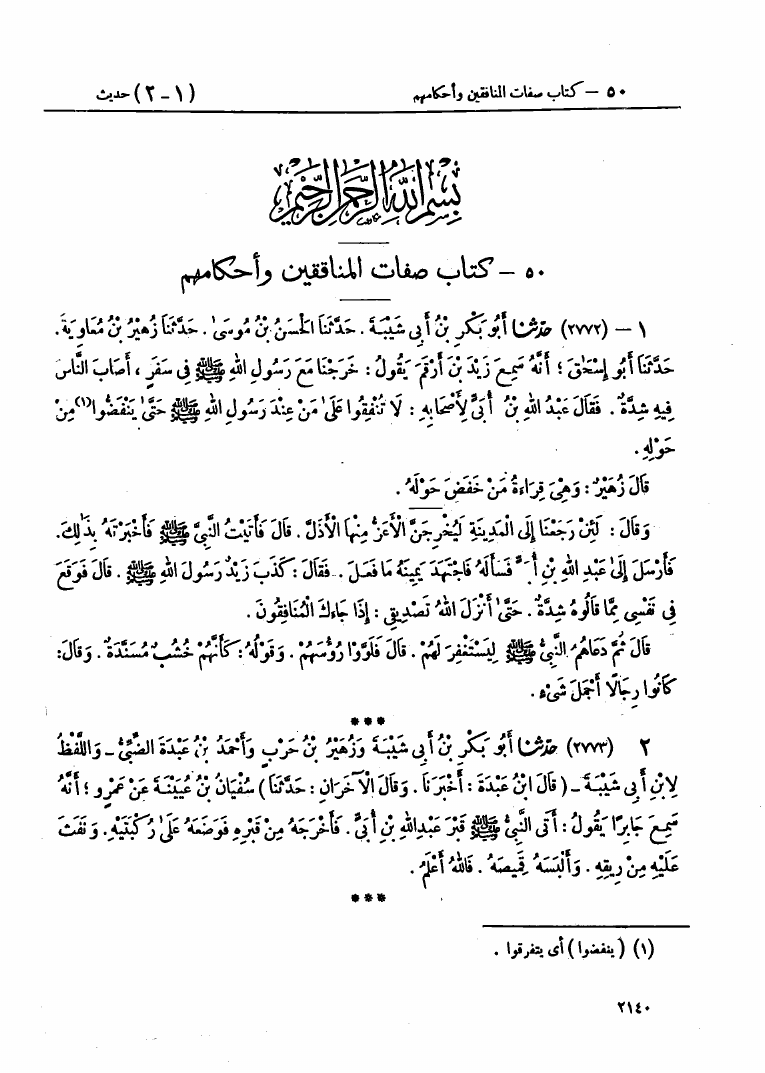 ٥٠ – كتاب صفات المنافقين وأحكامهم (١ – ٢) حديث
بِسْمِ اللهِ الرَّحْمٰنِ الرَّحِيْمِ
٥٠ – كتاب صفات المنافقين وأحكامهم
١ – (٢٧٧٢) حدثنا أَبُو بَكْرِ بْنُ أَبِى شَيْبَةَ . حَدَّثَنَا الْحَسَنُ بْنُ مُوسَىٰ . حَدَّثَنَا زُهَيْرُ بْنُ مُعَاوِيَةَ .
حَدَّثَنَا أَبُو إِسْحَٰقَ ؛ أَنَّهُ سَمِعَ زَيْدَ بْنَ أَرْقَمَ يَقُولُ : خَرَجْنَا مَعَ رَسُولِ اللهِ ﷺ فِى سَفَرٍ ، أَصَابَ النَّاسَ
فِيهِ شِدَّةٌ . فَقَالَ عَبْدُ اللهِ بْنُ أُبَىٍّ لِأَصْحَابِهِ : لَا تُنْفِقُوا عَلَىٰ مَنْ عِنْدَ رَسُولِ اللهِ ﷺ حَتَّىٰ يَنْفَضُّوا(١) مِنْ
حَوْلِهِ .
قَالَ زُهَيْرٌ : وَهِىَ قِرَاءَةُ مَنْ خَفَضَ حَوْلَهُ .
وَقَالَ : لَئِنْ رَجَعْنَا إِلَى الْمَدِينَةِ لَيُخْرِجَنَّ الْأَعَزُّ مِنْهَا الْأَذَلَّ . قَالَ فَأَتَيْتُ النَّبِىَّ ﷺ فَأَخْبَرْتُهُ بِذَٰلِكَ .
فَأَرْسَلَ إِلَىٰ عَبْدِ اللهِ بْنِ أُبَىٍّ فَسَأَلَهُ فَاجْتَهَدَ يَمِينَهُ مَا فَعَلَ . فَقَالَ : كَذَبَ زَيْدٌ رَسُولَ اللهِ ﷺ . قَالَ فَوَقَعَ
فِى نَفْسِى مِمَّا قَالُوهُ شِدَّةٌ . حَتَّىٰ أَنْزَلَ اللهُ تَصْدِيقِى : إِذَا جَاءَكَ الْمُنَافِقُونَ .
قَالَ ثُمَّ دَعَاهُمُ النَّبِىُّ ﷺ لِيَسْتَغْفِرَ لَهُمْ . قَالَ فَلَوَّوْا رُؤُسَهُمْ . وَقَوْلُهُ : كَأَنَّهُمْ خُشُبٌ مُسَنَّدَةٌ . وَقَالَ :
كَانُوا رِجَالًا أَجْمَلَ شَىْءٍ .
***
٢ (٢٧٧٣) حدثنا أَبُو بَكْرِ بْنُ أَبِى شَيْبَةَ وَزُهَيْرُ بْنُ حَرْبٍ وَأَحْمَدُ بْنُ عَبْدَةَ الضَّبِّىُّ – وَاللَّفْظُ
لِابْنِ أَبِى شَيْبَةَ – ( قَالَ ابْنُ عَبْدَةَ : أَخْبَرَنَا . وَقَالَ الْآخَرَانِ : حَدَّثَنَا ) سُفْيَانُ بْنُ عُيَيْنَةَ عَنْ عَمْرٍو ؛ أَنَّهُ
سَمِعَ جَابِرًا يَقُولُ : أَتَى النَّبِىُّ ﷺ قَبْرَ عَبْدِ اللهِ بْنِ أُبَىٍّ . فَأَخْرَجَهُ مِنْ قَبْرِهِ فَوَضَعَهُ عَلَىٰ رُكْبَتَيْهِ . وَنَفَثَ
عَلَيْهِ مِنْ رِيقِهِ . وَأَلْبَسَهُ قَمِيصَهُ . فَاللهُ أَعْلَمُ .
***
(١) ( ينفضوا ) أى يتفرقوا .
٢١٤٠